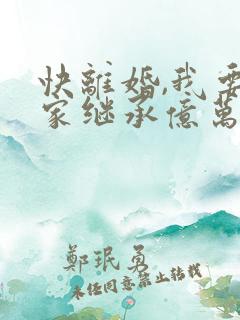 快離婚,我要
家继承億萬
鄭珉勇
未经同意禁止转载